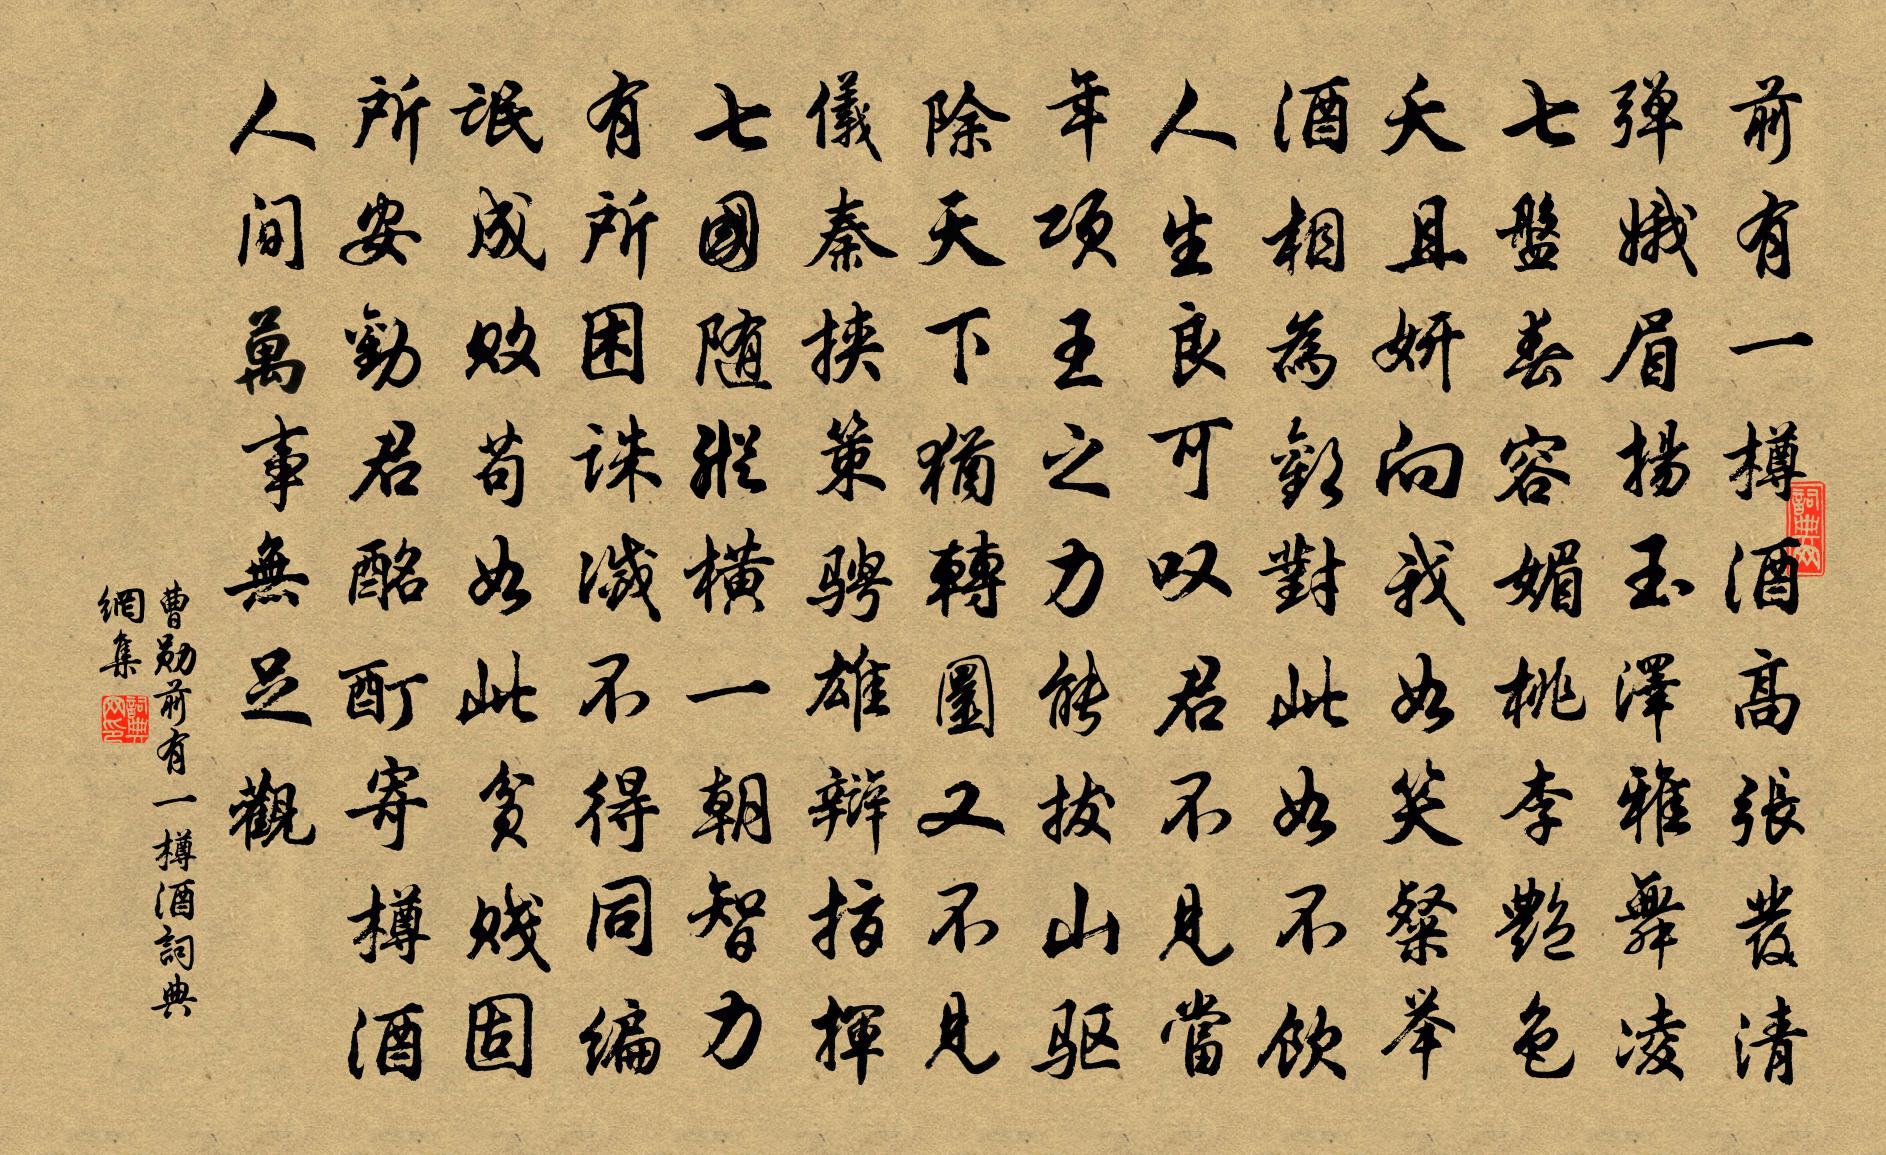 前有一樽酒高張發清
弹娥眉揚玉澤雅舞凌
七盤春容媚桃李艷色
夭且妍向我如笑粲举
酒相為歡對此如不飲
人生良可叹君不見當
年項王之力能拔山驱
除天下猶轉圜又不見
儀秦挾策騁雄辯指揮
七國随縱橫一朝智力
有所困誅滅不得同编
氓成败苟如此貧贱固
所安勸君酩酊寄樽酒
人间萬事無足觀
曹勋前有一樽酒詞典
網集